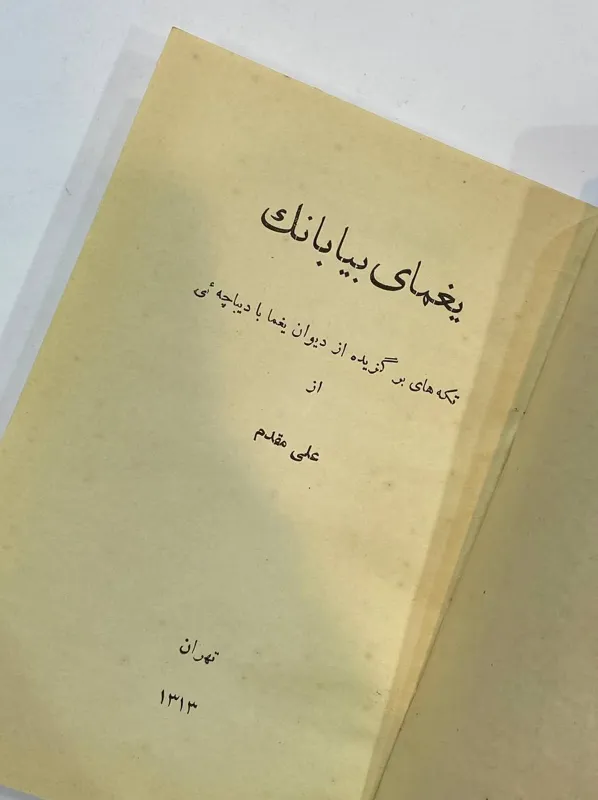 یغمای بیابانك
تکه های بر گزیده از دیوان یغما با دیباچهٔ ئی
از
علی مقدم
تهران
۱۳۱۳